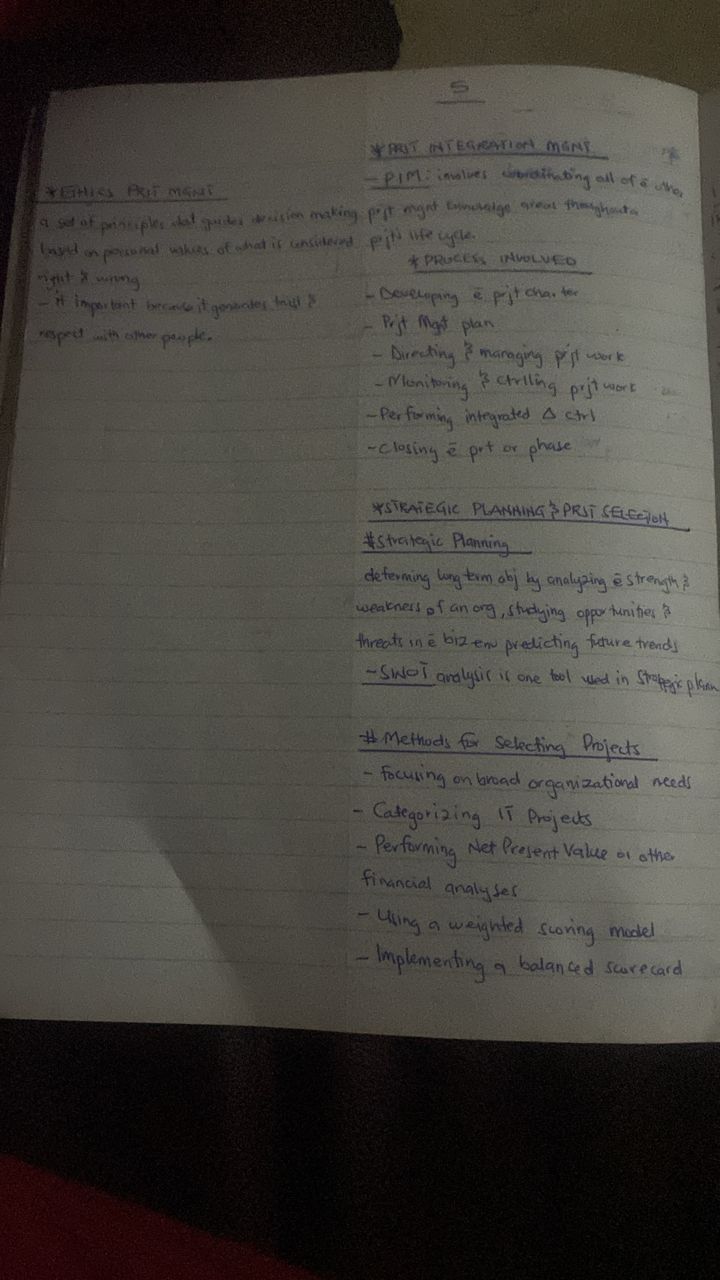 5
*ETHICS PRJT MGNT
a set of principles dat guides decision making
based on personal values of what is considered
right & wrong
- it important because it generates trust &
respect with other people.
*PRJT INTEGRATION MGNT
- PIM: involves coordinating all of ē other
prjt mgnt knowledge areas throughout a
prjts life cycle.
*PROCESS INVOLVED
- Developing ē prjt charter
- Prjt Mgt plan
- Directing & managing prjt work
- Monitoring & ctrlling prjt work
- Performing integrated Δ ctrl
- Closing ē prt or phase
*STRATEGIC PLANNING & PRJT SELECTION
#Strategic Planning
determing long term obj by analyzing ē strength &
weakness of an org, studying opportunities &
threats in ē biz env predicting future trends
- SWOT analysis is one tool used in Strategic plann
# Methods for Selecting Projects
- focusing on broad organizational needs
- Categorizing IT Projects
- Performing Net Present Value or other
financial analyses
- Using a weighted scoring model
- Implementing a balanced scorecard